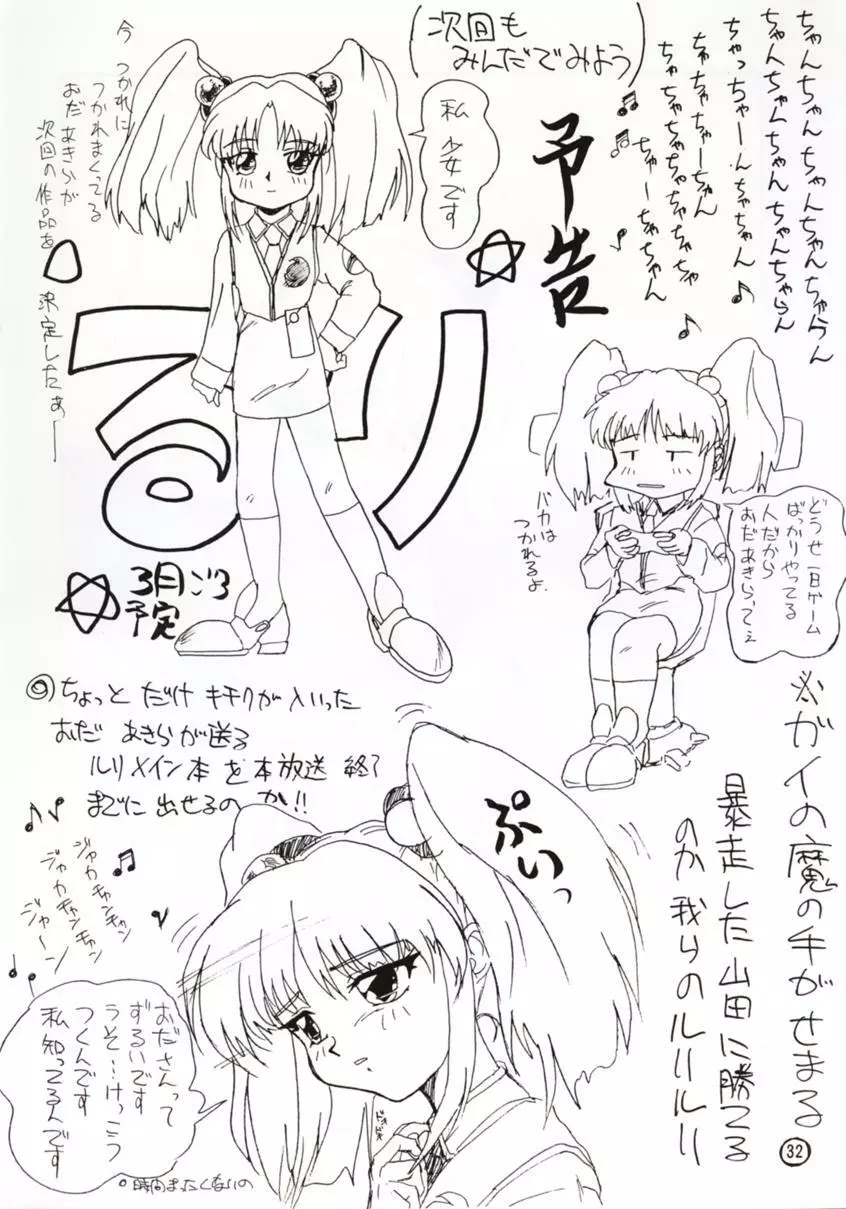 (次回も
みんだでみよう)
ちゃんちゃん ちゃんちゃんちゃらん
ちゃんちゃんちゃん ちゃんちゃらん
ちゃっちゃーんちゃちゃん♪
ちゃちゃちゃーちゃん
ちゃちゃちゃちゃちゃちゃちゃ
ちゃーちゃちゃん
予告
私
少女です
今 つかれに
つかれまくってる
おだ あきらが
次回の作品を
決定したぁー
るり
3月ごろ
予定
どうせ一日ゲーム
ばっかりやってる
人だから
おだあきらってぇ
バカは
つかれるよ.
◎ちょっと だけ キモクが入いった
おだ あきらが送る
ルリメイン本を本放送 終了
までに 出せるのか!!
※ガイの魔の手がせまる
暴走した山田に勝てる
のか 我らのルリルリ
ぷいっ
ジャカキャンキャン
ジャカキャンキャン
ジャーン
おださんって
ずるいです
うそ…けっこう
つくんです
私知ってるんです
時間まったくないの
32